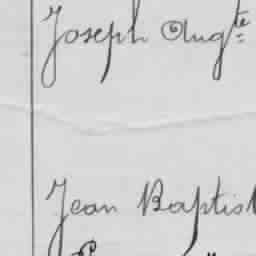 Joseph Aug^te
Jean Baptist